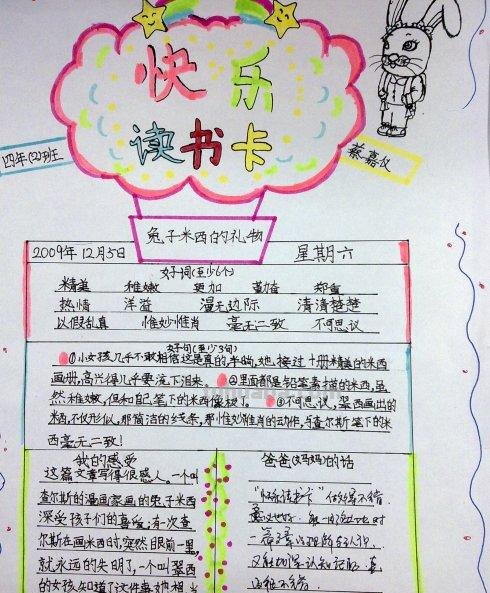 快乐
读书卡
四年(2)班
蔡嘉仪
兔子米西的礼物
2009年12月5日 星期六
好词(至少6个)
精美 稚嫩 更加 勤奋 郑重
热情 洋溢 漫无边际 清清楚楚
以假乱真 惟妙惟肖 毫无二致 不可思议
好句(至少3句)
①小女孩几乎不敢相信这是真的,半晌,她接过十册精美的米西
画册,高兴得几乎要流下泪来。②里面都是铅笔素描的米西,虽
然稚嫩,但和自己笔下的米西像极了。③不可思议,翠西画出的
米西,不仅形似,那简洁的线条,那惟妙惟肖的动作,与查尔斯笔下的米
西毫无二致!
我的感受
这篇文章写得很感人。一个叫
查尔斯的漫画家画的兔子米西
深受孩子们的喜爱;有一次查
尔斯在画米西时,突然眼前一黑,
就永远的失明了,一个叫翠西
的女孩知道了这件事她相当
爸爸(妈妈)的话
"快乐读书卡"做得不错,